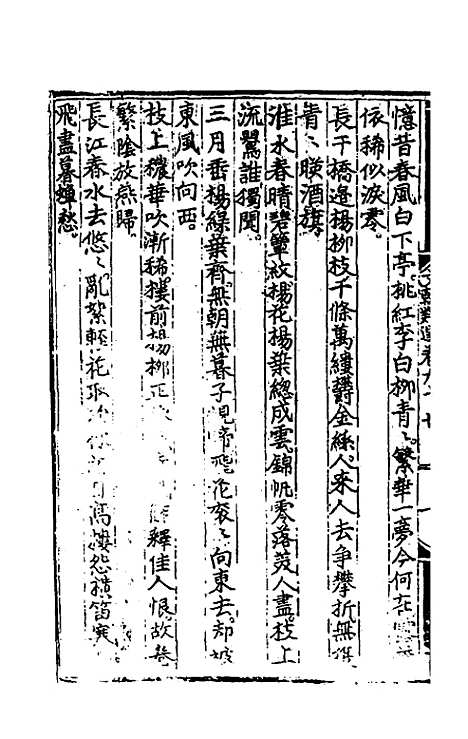 憶昔春風白下亭桃紅李白柳青〻繁華一夢今何在
依稀似淚零
長干橋邊楊柳枝千條萬縷欝金絲人來人去爭攀折無
青〻暎酒旗
淮水春晴碧簟紋楊花楊葉總成雲錦帆零落美人盡枝上
流鶯誰獨聞
三月垂楊綠葉齊無朝無暮子規啼飛花衮〻向東去却被
東風吹向西
枝上穠華吹漸稀樓前楊柳正釋佳人恨故
繁陰放燕歸
長江春水去悠〻亂絮輕花高樓怨横笛寒
飛盡暮蟬愁